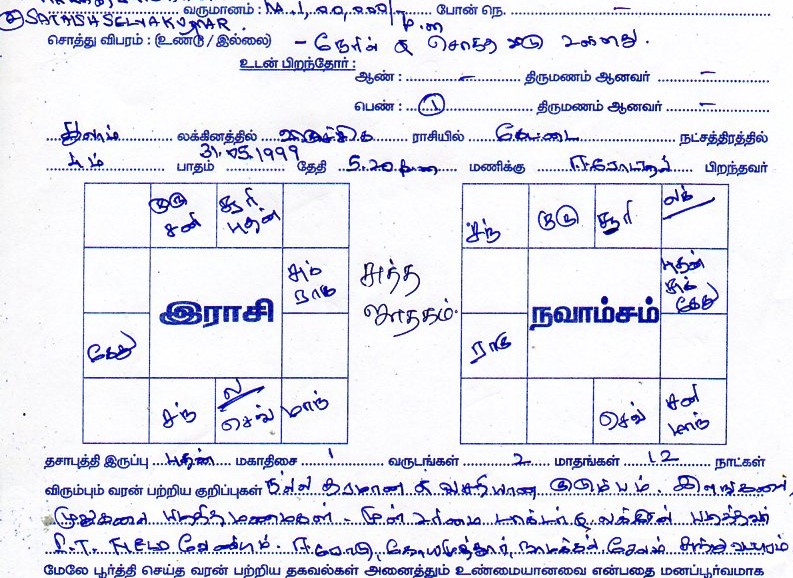 SATHISH SELVAKUMAR வருமானம் : M.I, 20,000/ போன் நெ. –
சொத்து விபரம் : (உண்டு / இல்லை) – சொந்த வீடு உள்ளது.
உடன் பிறந்தோர் :
ஆண் : – திருமணம் ஆனவர் –
பெண் : 1 திருமணம் ஆனவர் –
துலாம் லக்கினத்தில் விருச்சிக ராசியில் கேட்டை நட்சத்திரத்தில்
4ம் பாதம் 31.05.1999 தேதி 5.20 மணிக்கு பிறந்தவர்
குரு சனி சூரி புதன்
சுக் ராகு
இராசி
கேது
சந் ல செவ் மாந்
சுத்த ஜாதகம்.
சந் குரு சூரி லக்
புதன் சுக் கேது
நவாம்சம்
ராகு
செவ் சனி மாந்
தசாபுத்தி இருப்பு புதன் மகாதிசை 1 வருடங்கள் 2 மாதங்கள் 12 நாட்கள்
விரும்பும் வரன் பற்றிய குறிப்புகள் நல்ல தரமான வசதியான குடும்பம். இளங்கலை,
முதுகலை
I.T. Field வேண்டும். கோயமுத்தூர், நாமக்கல் சேலம்
மேலே பூர்த்தி செய்த வரன் பற்றிய தகவல்கள் அனைத்தும் உண்மையானவை என்பதை மனப்பூர்வமாக